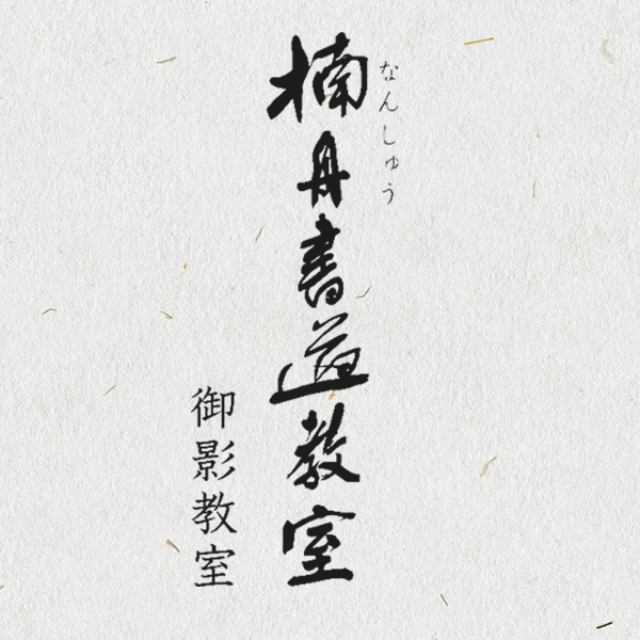 なんしゅう
楠舟書道教室
御影教室